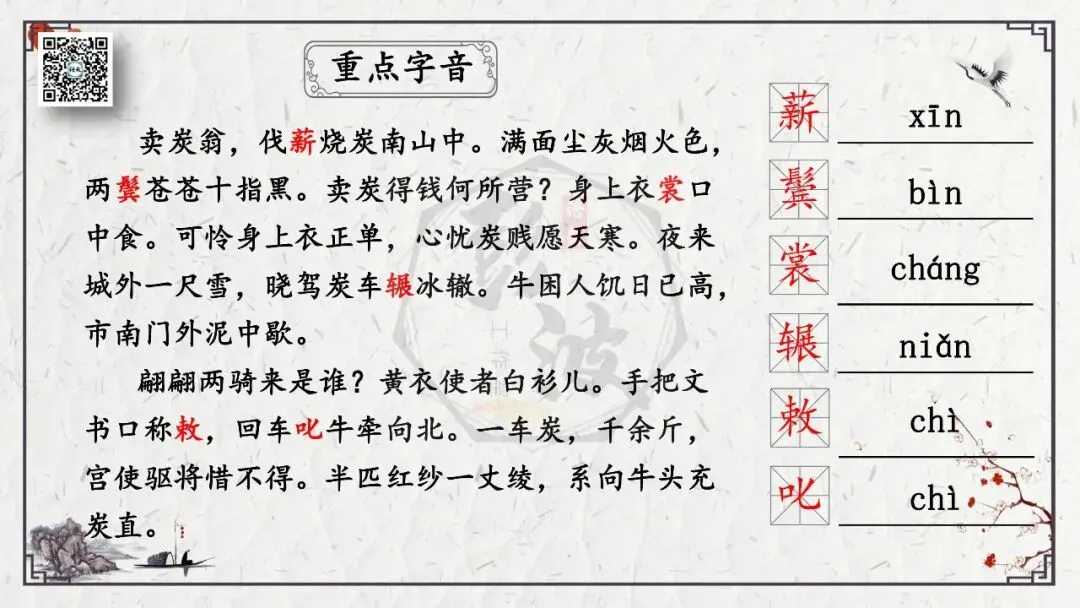 重点字音
卖炭翁，伐薪烧炭南山中。满面尘灰烟火色，
两鬓苍苍十指黑。卖炭得钱何所营？身上衣裳口
中食。可怜身上衣正单，心忧炭贱愿天寒。夜来
城外一尺雪，晓驾炭车辗冰辙。牛困人饥日已高，
市南门外泥中歇。
翩翩两骑来是谁？黄衣使者白衫儿。手把文
书口称敕，回车叱牛牵向北。一车炭，千余斤，
宫使驱将惜不得。半匹红纱一丈绫，系向牛头充
炭直。
薪 xīn
鬓 bìn
裳 cháng
辗 niǎn
敕 chì
叱 chì